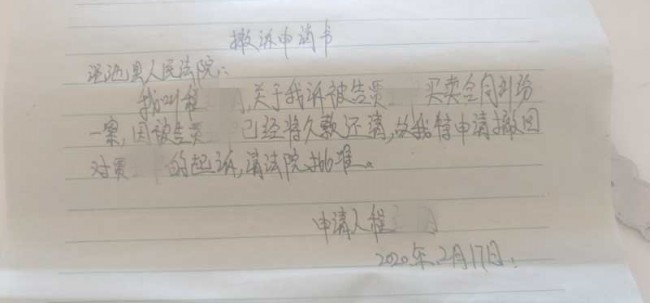 撤诉申请书
渑池县人民法院:
我叫程 ,关于我诉被告贾 买卖合同纠纷
一案,因被告贾 已经将欠款还清,故我特申请撤回
对贾 的起诉,请法院批准。
申请人程
2020年12月17日.